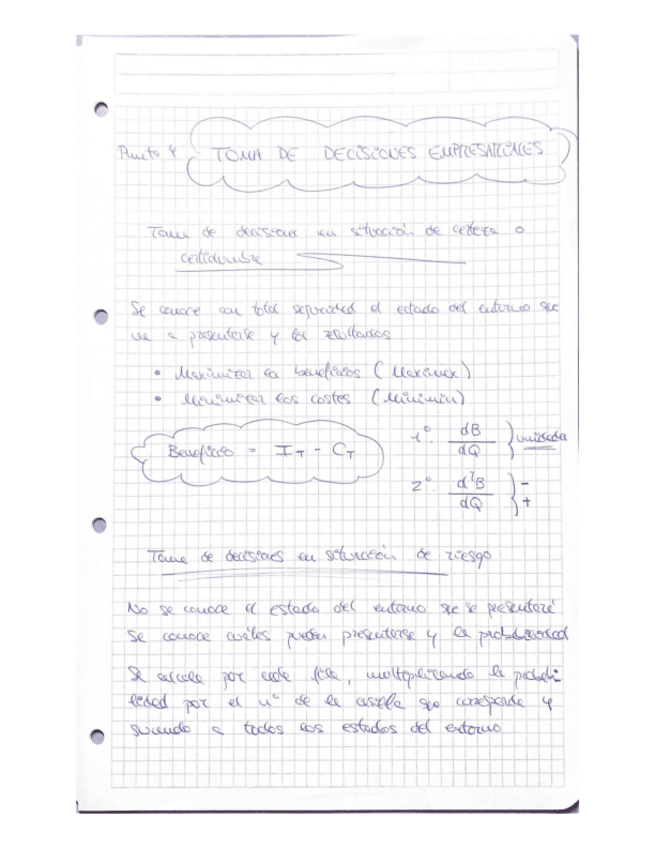 Punto 4 TOMA DE DECISIONES EMPRESARIALES
Toma de decisiones en situación de certeza o
certidumbre
Se conoce con total seguridad el estado del entorno que
va a presentarse y los resultados
• Maximizar los beneficios (Maximax)
• Minimizar los costes (Minimin)
Beneficio = I_T - C_T
1º. dB/dQ } unidades
2º. d²B/dQ } - +
Toma de decisiones en situación de riesgo
No se conoce el estado del entorno que se presentará
Se conoce cuáles pueden presentarse y la probabilidad
Se calcula por cada fila, multiplicando la probabi-
lidad por el nº de la casilla que corresponde y
sumando a todos los estados del entorno